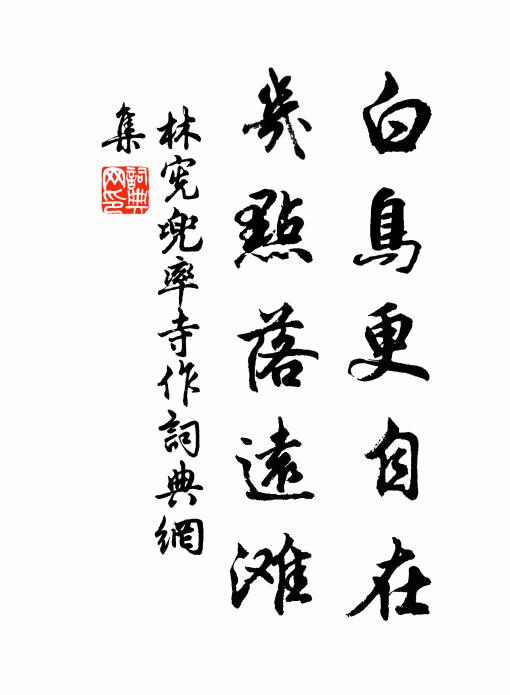 白鳥更自在
幾點落遠滩
林宪兜率寺作詞典網
集
詞典網印